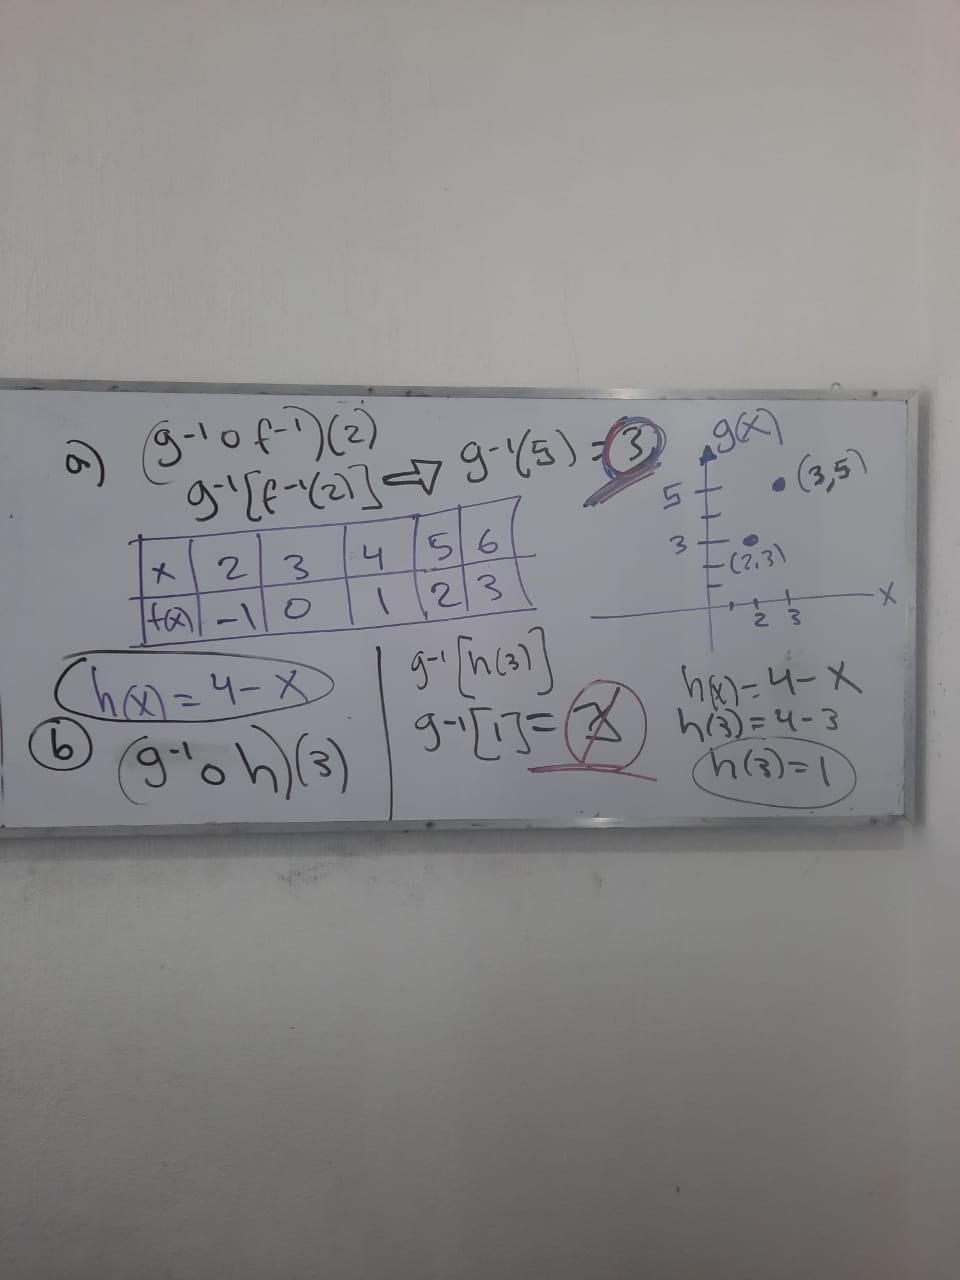 a) (g⁻¹ o f⁻¹)(2)
g⁻¹[f⁻¹(2)] ⇒ g⁻¹(5) = 3
x 2 3 4 5 6
f(x) -1 0 1 2 3
g(x)
5
(3,5)
3
(2,3)
2 3
x
h(x) = 4 - x
b (g⁻¹ o h)(3)
g⁻¹[h(3)]
g⁻¹[1] =
h(x) = 4 - x
h(3) = 4 - 3
h(3) = 1